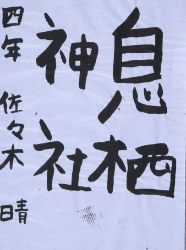 息栖
神社
四年 佐々木 晴